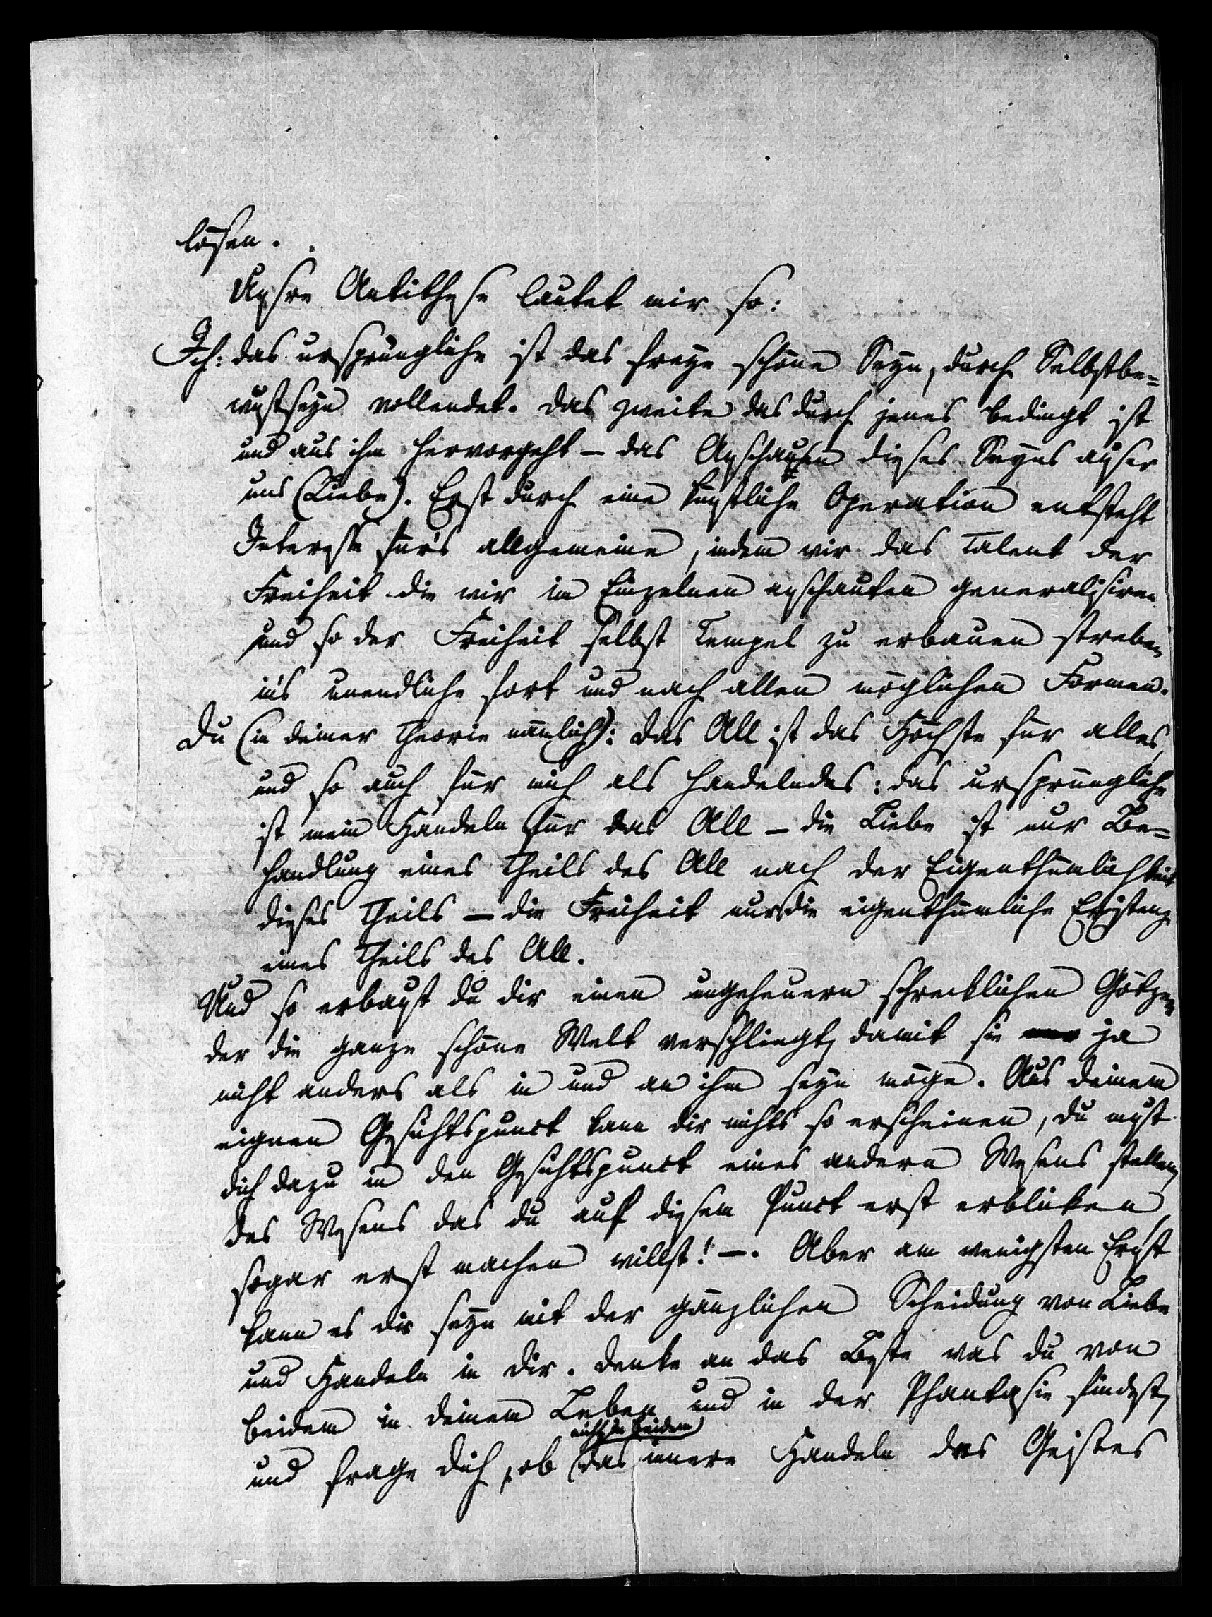 lösen.
Unsre Antithese lautet mir so:
Ich: das ursprüngliche ist das freye schöne Seyn, durch Selbstbe=
wußtseyn vollendet. Das zweite das durch jenes bedingt ist
und aus ihm hervorgeht – das Anschauen dieses Seyns außer
uns (Liebe). Erst durch eine künstliche Operation entsteht
Interesse für's allgemeine, indem wir das Talent der
Freiheit die wir im Einzelnen anschauten generalisiren
und so der Freiheit selbst Tempel zu erbauen streben
in's unendliche fort und nach allen möglichen Formen.
Du (in deiner Theorie nämlich): das All ist das Höchste für alles,
und so auch für mich als handelndes: das ursprüngliche
ist mein Handeln für das All – die Liebe ist nur Be=
handlung eines Theils des All nach der Eigenthümlichkeit
dieses Theils – die Freiheit nur die eigenthümliche Existenz
eines Theils des All.
Und so erbaust du dir einen ungeheuern schrecklichen Götzen
der die ganze schöne Welt verschlingt, damit sie ja
nicht anders als in und an ihm seyn möge. Aus deinem
eignen Gesichtspunct kann dir nichts so erscheinen, du must
dich dazu in den Gesichtspunct eines andern Wesens stellen,
des Wesens das du auf diesem Punct erst erblicken,
sogar erst machen willst! –. Aber am wenigsten Ernst
kann es dir seyn mit der gänzlichen Scheidung von Liebe
und Handeln in dir. Denke an das Beste was du von
beidem in deinem Leben und in der Phantasie findest,
und frage dich, ob nicht in beidem das innere Handeln des Geistes